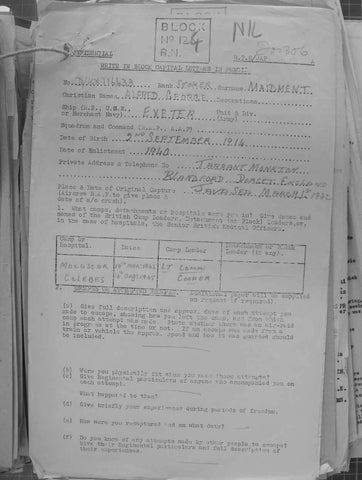 BLOCK
No 124
R.N.
NIL
CONFIDENTIAL
WRITE IN BLOCK CAPITAL LETTERS IN PENCIL
No. Rank STOKER Surname MAIDMENT
Christian Names ALFRED GEORGE Decorations
Ship (R.N., U.S.N. or Merchant Navy) EXETER Unit & Div. (Army)
Squadron and Command (R.A.F., A.A.F)
Date of Birth 3RD SEPTEMBER 1914
Date of Enlistment 1940
Private Address & Telephone No TARRANT MONKTON
BLANDFORD, DORSET, ENGLAND
Place & Date of Original Capture JAVA SEA MARCH 1ST 1942
(Aircrew R.A.F. to give place & date of a/c crash).
1. What camps, detachments or hospitals were you in? Give dates and
names of the British Camp Leaders, Detachment (or Block) Leaders, or,
in the case of hospitals, the Senior British Medical Officers.
Camp or Hospital. Dates Camp Leader Detachment or Block Leader (if any).
MACASSAR 10TH MAR. 1942 LT COMM
CELEBES SEPT 1945 COOPER
2. (Additional paper will be supplied
on request if required)
(a) Give full description and approx. date of each attempt you
made to escape, showing how you left the camp, and from which
camp each attempt was made. State whether there was an air-raid
in progress at the time or not. If an escape was made from a
train or vehicle the approx. speed and how it was guarded should
be included.
(b) Were you physically fit when you made these attempts?
(c) Give Regimental particulars of anyone who accompanied you on
each attempt.
What happened to them?
(d) Give briefly your experiences during periods of freedom.
(e) How were you recaptured and on what date?
(f) Do you know of any attempts made by other people to escape?
Give their Regimental particulars and full description of
their experiences.